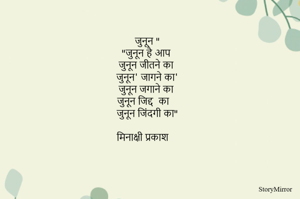 जुनून "
"जुनून है आप
जुनून जीतने का
जुनून' जागने का'
जुनून जगाने का
जुनून जिद्द का
जुनून जिंदगी का"
मिनाक्षी प्रकाश
StoryMirror